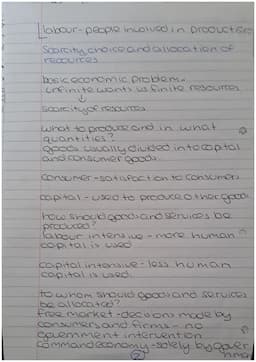 labour - people involved in production
Scarcity, choice and allocation of
resources
basic economic problem -
unfinite wants vs finite resources
↓
scarcity of resources
what to produce and in what
quantities?
goods usually divided into capital
and consumer goods.
consumer - satisfaction to consumers
capital - used to produce other goods
how should goods and services be
produced?
labour intensive - more human
capital is used
capital intensive - less human
capital is used.
to whom should goods and services
be allocated?
free market - decisions made by
consumers and firms - no
government intervention
command economy - solely by gover
nment
2